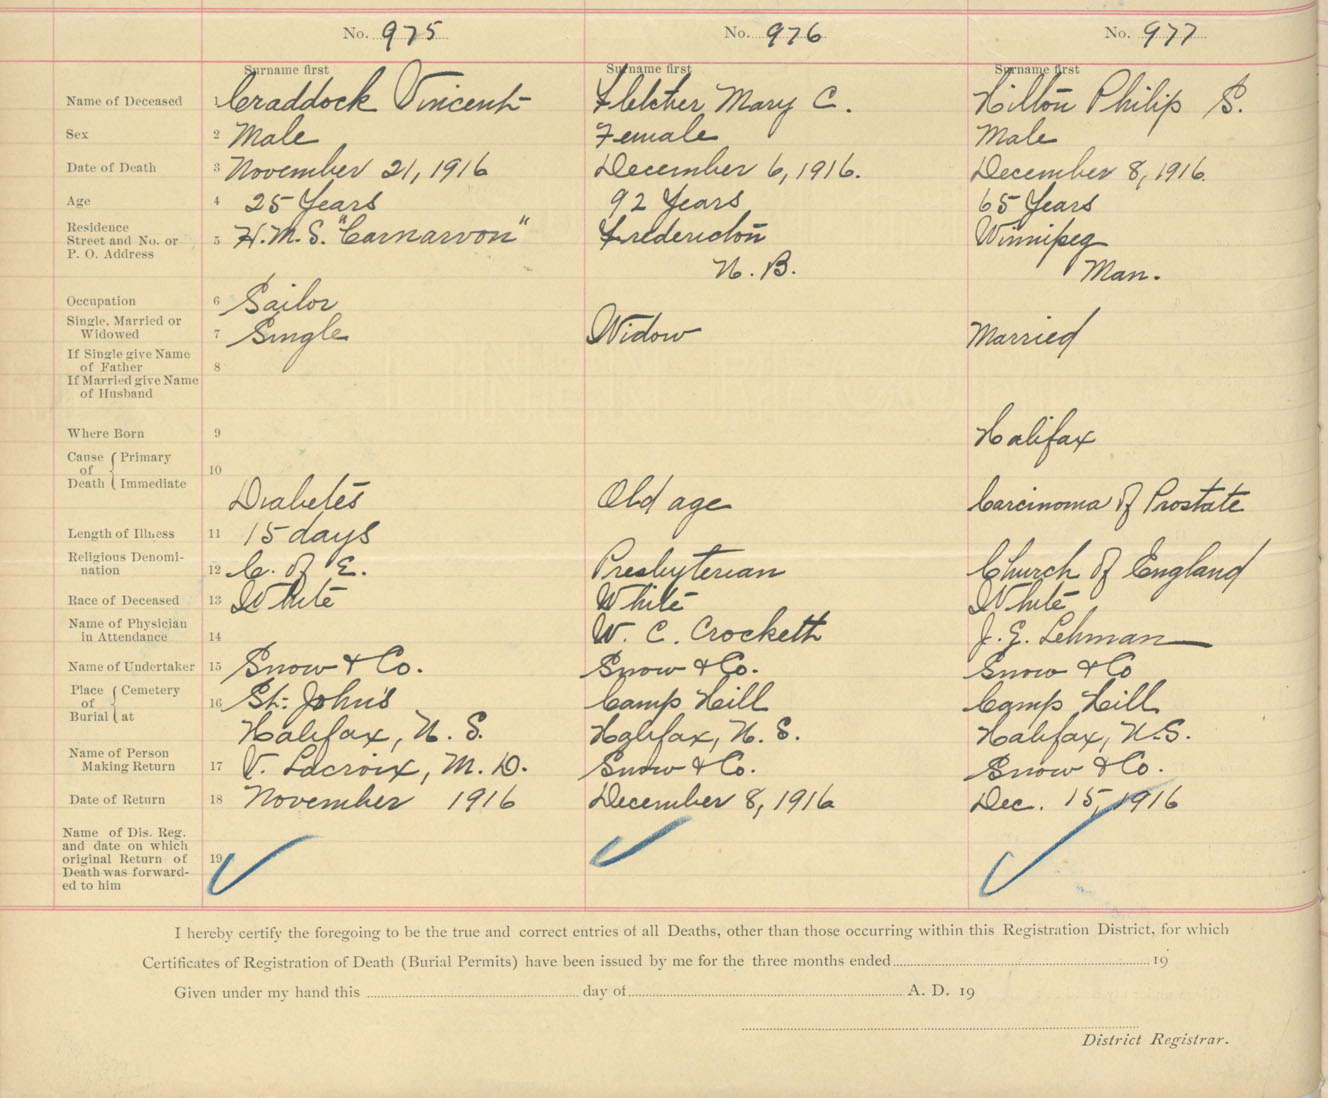 No. 975 No. 976 No. 977
Surname first Surname first Surname first
Name of Deceased 1 Craddock Vincent Fletcher Mary C. Hilton Philip S.
Sex 2 Male Female Male
Date of Death 3 November 21, 1916 December 6, 1916. December 8, 1916.
Age 4 25 Years 92 Years 65 Years
Residence
Street and No. or 5 H.M.S. "Carnarvon" Fredericton Winnipeg
P. O. Address N. B. Man.
Occupation 6 Sailor
Single, Married or
Widowed 7 Single Widow Married
If Single give Name
of Father 8
If Married give Name
of Husband
Where Born 9 Halifax
Cause Primary
of 10
Death Immediate
Diabetes Old age Carcinoma of Prostate
Length of Illness 11 15 days
Religious Denomi-
nation 12 C. of E. Presbyterian Church of England
Race of Deceased 13 White White White
Name of Physician
in Attendance 14 W. C. Crockett J. E. Lehman
Name of Undertaker 15 Snow & Co. Snow & Co. Snow & Co
Place Cemetery
of 16 St. John's Camp Hill Camp Hill
Burial at Halifax, N. S. Halifax, N. S. Halifax, N.S.
Name of Person
Making Return 17 V. Lacroix, M. D. Snow & Co. Snow & Co.
Date of Return 18 November 1916 December 8, 1916 Dec. 15, 1916
Name of Dis. Reg.
and date on which
original Return of 19
Death was forward-
ed to him
I hereby certify the foregoing to be the true and correct entries of all Deaths, other than those occurring within this Registration District, for which
Certificates of Registration of Death (Burial Permits) have been issued by me for the three months ended 19
Given under my hand this day of A. D. 19
District Registrar.